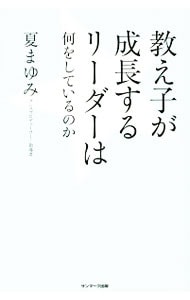 教え子が
成長する
リーダーは
何をしているのか
夏まゆみ
サンマーク出版